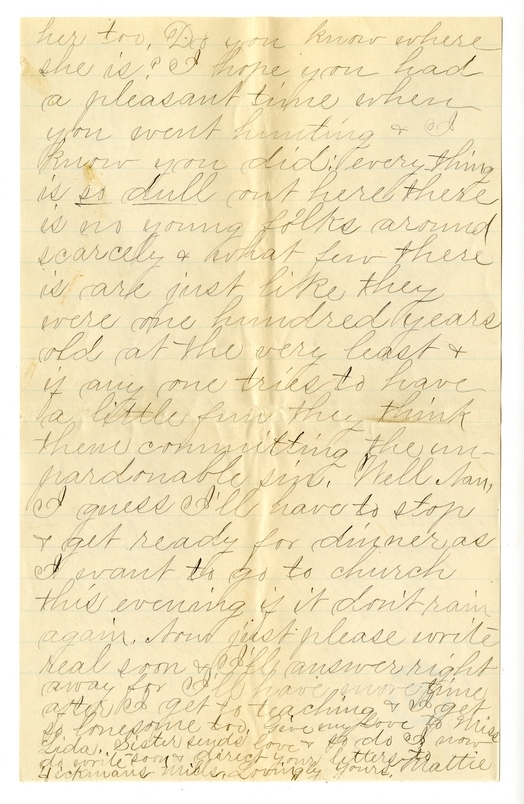 her too. Do you know where
she is? I hope you had
a pleasant time when
you went hunting & I
know you did; everything
is so dull out here there
is no young folks around
scarcely & what few there
is are just like they
were one hundred years
old at the very least &
if any one tries to have
a little fun they think
them committing the un-
pardonable sin. Well Nan,
I guess I'll have to stop
& get ready for dinner, as
I want to go to church
this evening if it don't rain
again. Now just please write
real soon & I'll answer right
away for I'll have more time
after I get to teaching & I get
so lonesome too, Give my love to Miss
Lida. Sister sends love & so do I now
do write soon & direct your letters to
Hickmans Mills. Lovingly yours, Mattie